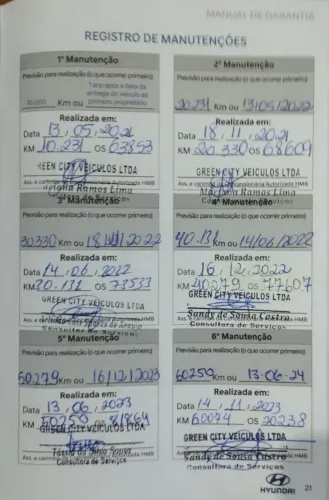 MANUAL DE GARANTIA
REGISTRO DE MANUTENÇÕES
1ª Manutenção
Previsão para realização (o que ocorrer primeiro)
10.000 Km ou 1 ano após a data da entrega do veículo ao primeiro proprietário
Realizada em:
Data 13, 05, 2021
KM 10.231 OS 63853
GREEN CITY VEÍCULOS LTDA
Ass. e carimbo da Concessionária Autorizada HMB
Ramos Lima
2ª Manutenção
Previsão para realização (o que ocorrer primeiro)
20231 Km ou 13/05/2022
Realizada em:
Data 18, 11, 2021
KM 20.330 OS 68609
GREEN CITY VEÍCULOS LTDA
Ass. e carimbo da Concessionária Autorizada HMB
Ramos Lima
3ª Manutenção
Previsão para realização (o que ocorrer primeiro)
30330 Km ou 18/11/2022
Realizada em:
Data 14, 06, 2022
KM 30.131 OS 73533
GREEN CITY VEÍCULOS LTDA
Consultor de Serviços
4ª Manutenção
Previsão para realização (o que ocorrer primeiro)
40.131 Km ou 14/06/2022
Realizada em:
Data 16, 12, 2022
KM 40279 OS 77607
GREEN CITY VEÍCULOS LTDA
Sandy de Sousa Castro
Consultora de Serviços
5ª Manutenção
Previsão para realização (o que ocorrer primeiro)
50279 Km ou 16/12/2023
Realizada em:
Data 13, 06, 2023
KM 50259 OS 81864
GREEN CITY VEÍCULOS LTDA
Consultora de Serviços
6ª Manutenção
Previsão para realização (o que ocorrer primeiro)
60259 Km ou 13-06-24
Realizada em:
Data 14, 11, 2023
KM 60074 OS 20238
GREEN CITY VEÍCULOS LTDA
Sandy de Sousa Castro
Consultora de Serviços
HYUNDAI 21